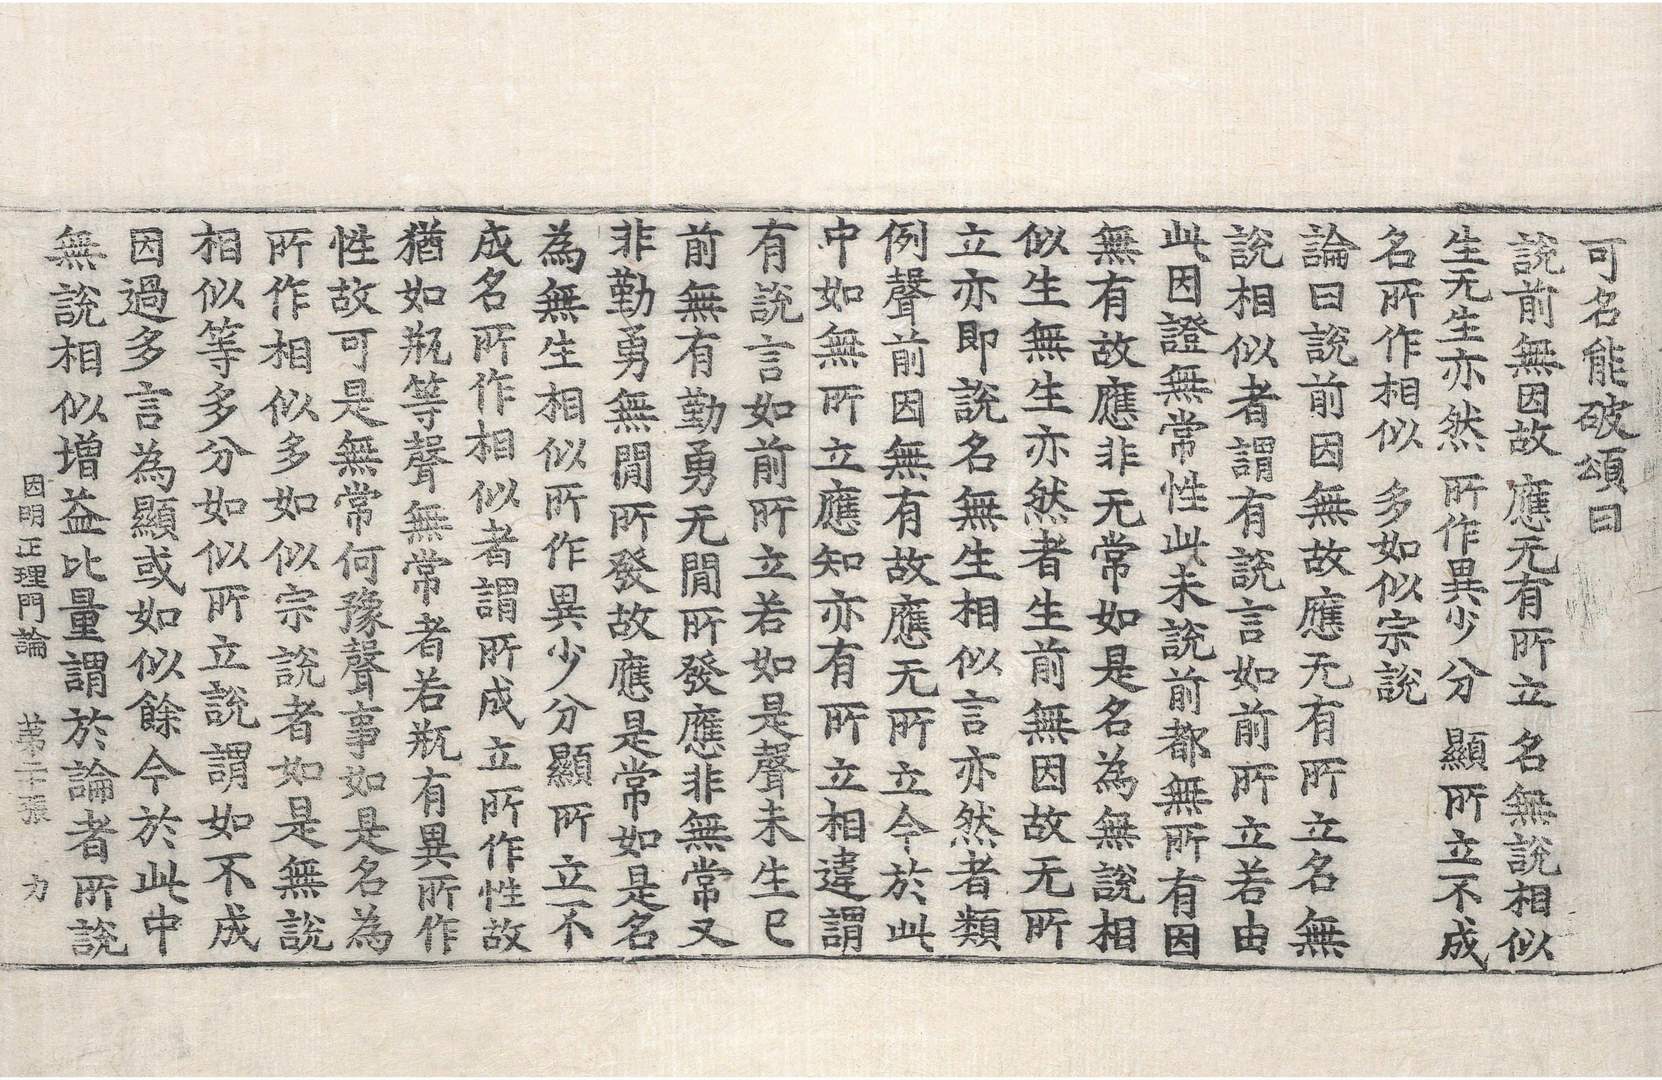 可名能破頌曰
說前無因故 應无有所立 名無說相似
生无生亦然 所作異少分 顯所立不成
名所作相似 多如似宗說
論曰說前因無故應无有所立名無
說相似者謂有說言如前所立若由
此因證無常性此未說前都無所有因
無有故應非无常如是名為無說相
似生無生亦然者生前無因故无所
立亦即說名無生相似言亦然者類
例聲前因無有故應无所立今於此
中如無所立應知亦有所立相違謂
有說言如前所立若如是聲未生已
前無有勤勇无閒所發應非無常又
非勤勇無閒所發故應是常如是名
為無生相似所作異少分顯所立不
成名所作相似者謂所成立所作性故
猶如瓶等聲無常者若瓶有異所作
性故可是無常何豫聲事如是名為
所作相似多如似宗說者如是無說
相似等多分如似所立說謂如不成
因過多言為顯或如似餘今於此中
無說相似增益比量謂於論者所說
因明正理門論 第二十張 力